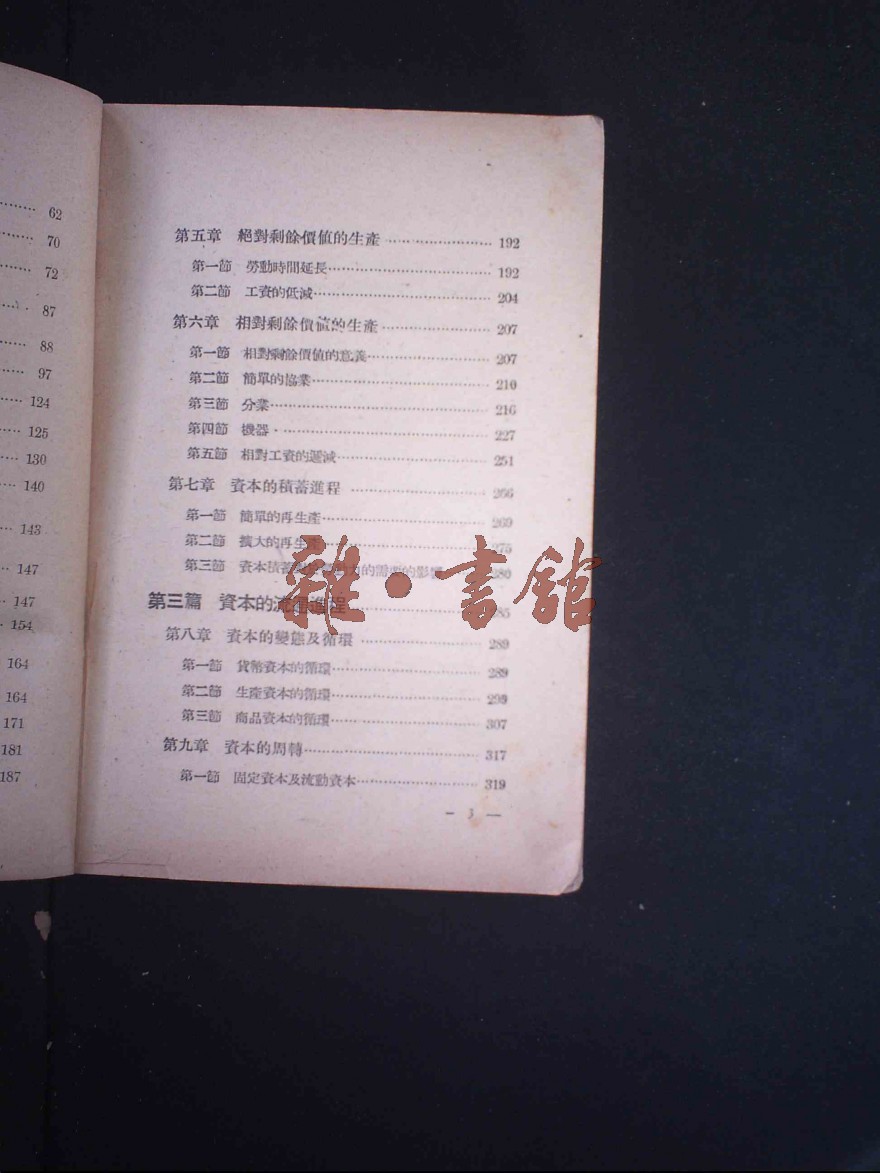 62
70
72
87
88
97
124
125
130
140
143
147
147
154
164
164
171
181
187
第五章 絕對剩餘價値的生產 192
第一節 勞動時間延長 192
第二節 工資的低減 204
第六章 相對剩餘價値的生產 207
第一節 相對剩餘價値的意義 207
第二節 簡單的協業 210
第三節 分業 216
第四節 機器 227
第五節 相對工資的遞減 251
第七章 資本的積蓄進程 266
第一節 簡單的再生產 269
第二節 擴大的再生產 275
第三節 資本積蓄 力的需要的影響 280
第三篇 資本的流通進程 285
第八章 資本的變態及循環 289
第一節 貨幣資本的循環 289
第二節 生產資本的循環 299
第三節 商品資本的循環 307
第九章 資本的周轉 317
第一節 固定資本及流動資本 319
— 3 —
雜·書館